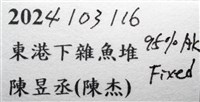 2024103116
東港下雜魚堆
陳昱丞(陳杰)
95% Alc
Fixed